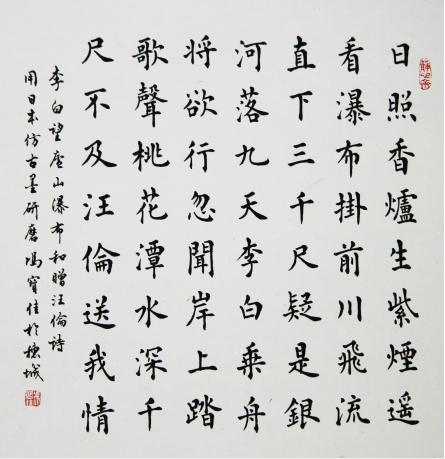 日照香爐生紫煙遥
看瀑布掛前川飛流
直下三千尺疑是銀
河落九天李白乗舟
将欲行忽聞岸上踏
歌聲桃花潭水深千
尺不及汪倫送我情
李白望廬山瀑布和贈汪倫詩
用日本仿古墨研磨馮寶佳於穗城